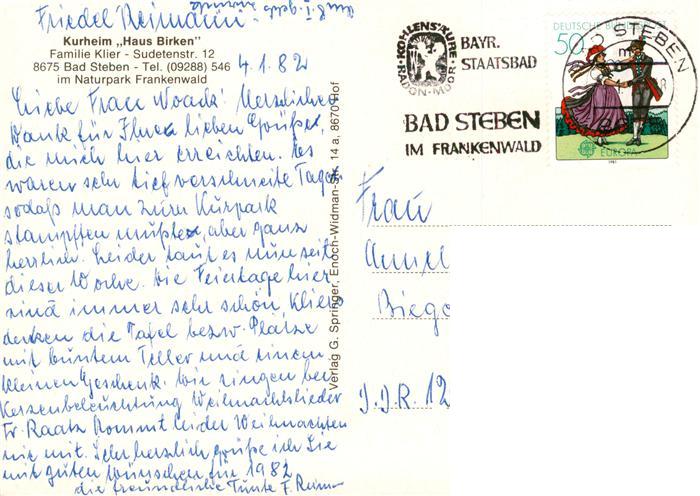 Friedel Reimann.
Kurheim „Haus Birken"
Familie Klier - Sudetenstr. 12
8675 Bad Steben - Tel. (09288) 546
im Naturpark Frankenwald
4.1.82
Liebe Frau Woack! Herzlichen
Dank für Ihren lieben Grüße,
die mich hier erreichten. Es
waren sehr tief verschneite Tage,
sodaß man zum Kurpark
stampften mußte, aber ganz
herrlich. Leider taut es nun seit
dieser Woche. Die Feiertage hier
sind immer sehr schön. Kliers
decken die Tafel bezw. Plätze
mit buntem Teller und einem
kleinen Geschenk. Wir singen bei
Kerzenbeleuchtung Weihnachtslieder
Fr. Raatz kommt leider Weihnachten
nie mit. Sehr herzlich grüße ich Sie
mit guten Wünschen für 1982
die freundliche Tante F. Reimann
Verlag G. Springer, Enoch-Widman-Str. 14 a, 8670 Hof
KOHLENSÄURE
RADON-MOOR
BAYR.
STAATSBAD
BAD STEBEN
IM FRANKENWALD
DEUTSCHE BUNDESPOST
50
EUROPA
1981
STEBEN
Frau
Biego
D.D.R. 12